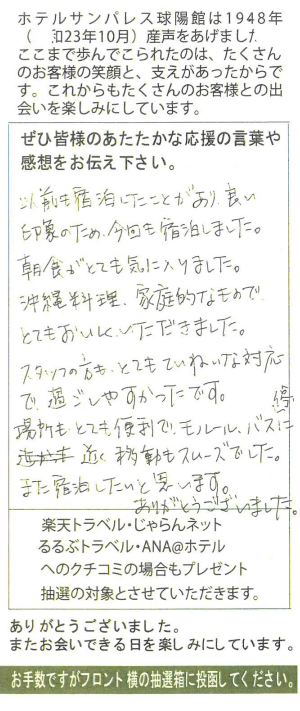 ホテルサンパレス球陽館は1948年
( 和23年10月)産声をあげました
ここまで歩んでこられたのは、たくさん
のお客様の笑顔と、支えがあったからで
す。これからもたくさんのお客様との出
会いを楽しみにしています。
ぜひ皆様のあたたかな応援の言葉や
感想をお伝え下さい。
以前も宿泊したことがあり、良い
印象のため、今回も宿泊しました。
朝食がとても気に入りました。
沖縄料理、家庭的なもので、
とてもおいしくいただきました。
スタッフの方も、とてもていねいな対応
で、過ごしやすかったです。
場所も、とても便利で、モルール、バスに
近く 移動もスムーズでした。
また宿泊したいと思います。
ありがとうございました。
楽天トラベル・じゃらんネット
るるぶトラベル・ANA@ホテル
へのクチコミの場合もプレゼント
抽選の対象とさせていただきます。
ありがとうございました。
またお会いできる日を楽しみにしています。
お手数ですがフロント横の抽選箱に投函してください。